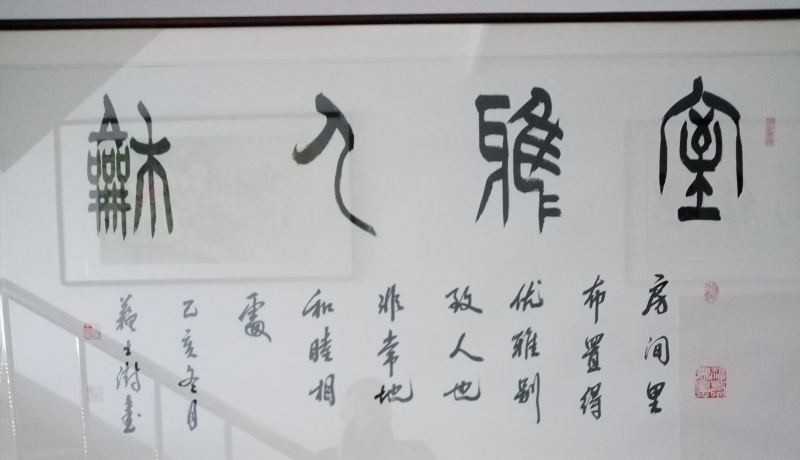 室雅人龢
房间里
布置得
优雅别
致人也
非常地
和睦相
處
己亥冬月
蘇士澍書